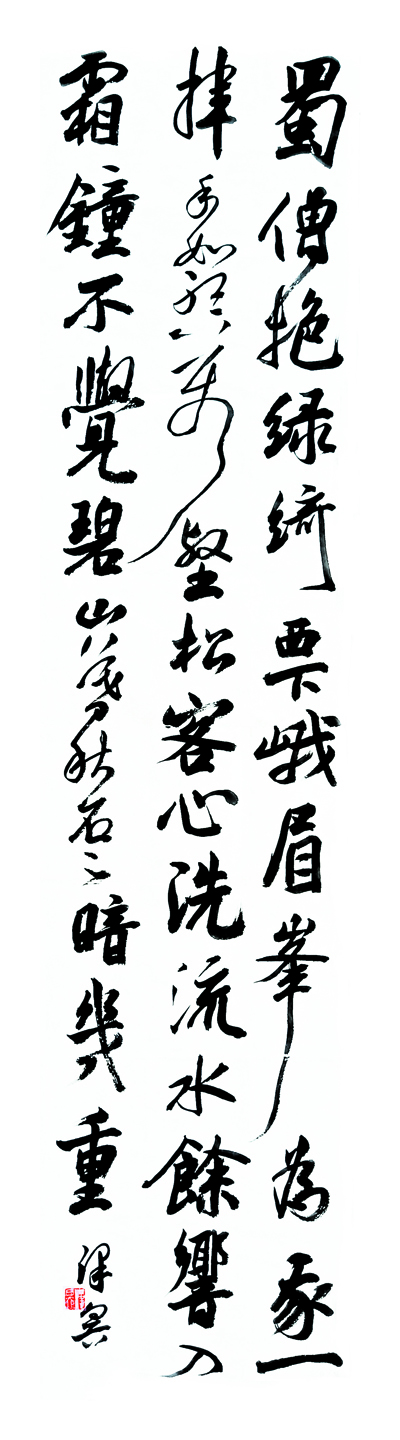 蜀僧抱綠綺西下峨眉峯為我一
揮手如聽萬壑松客心洗流水餘響入
霜鐘不覺碧山暮秋雲暗幾重